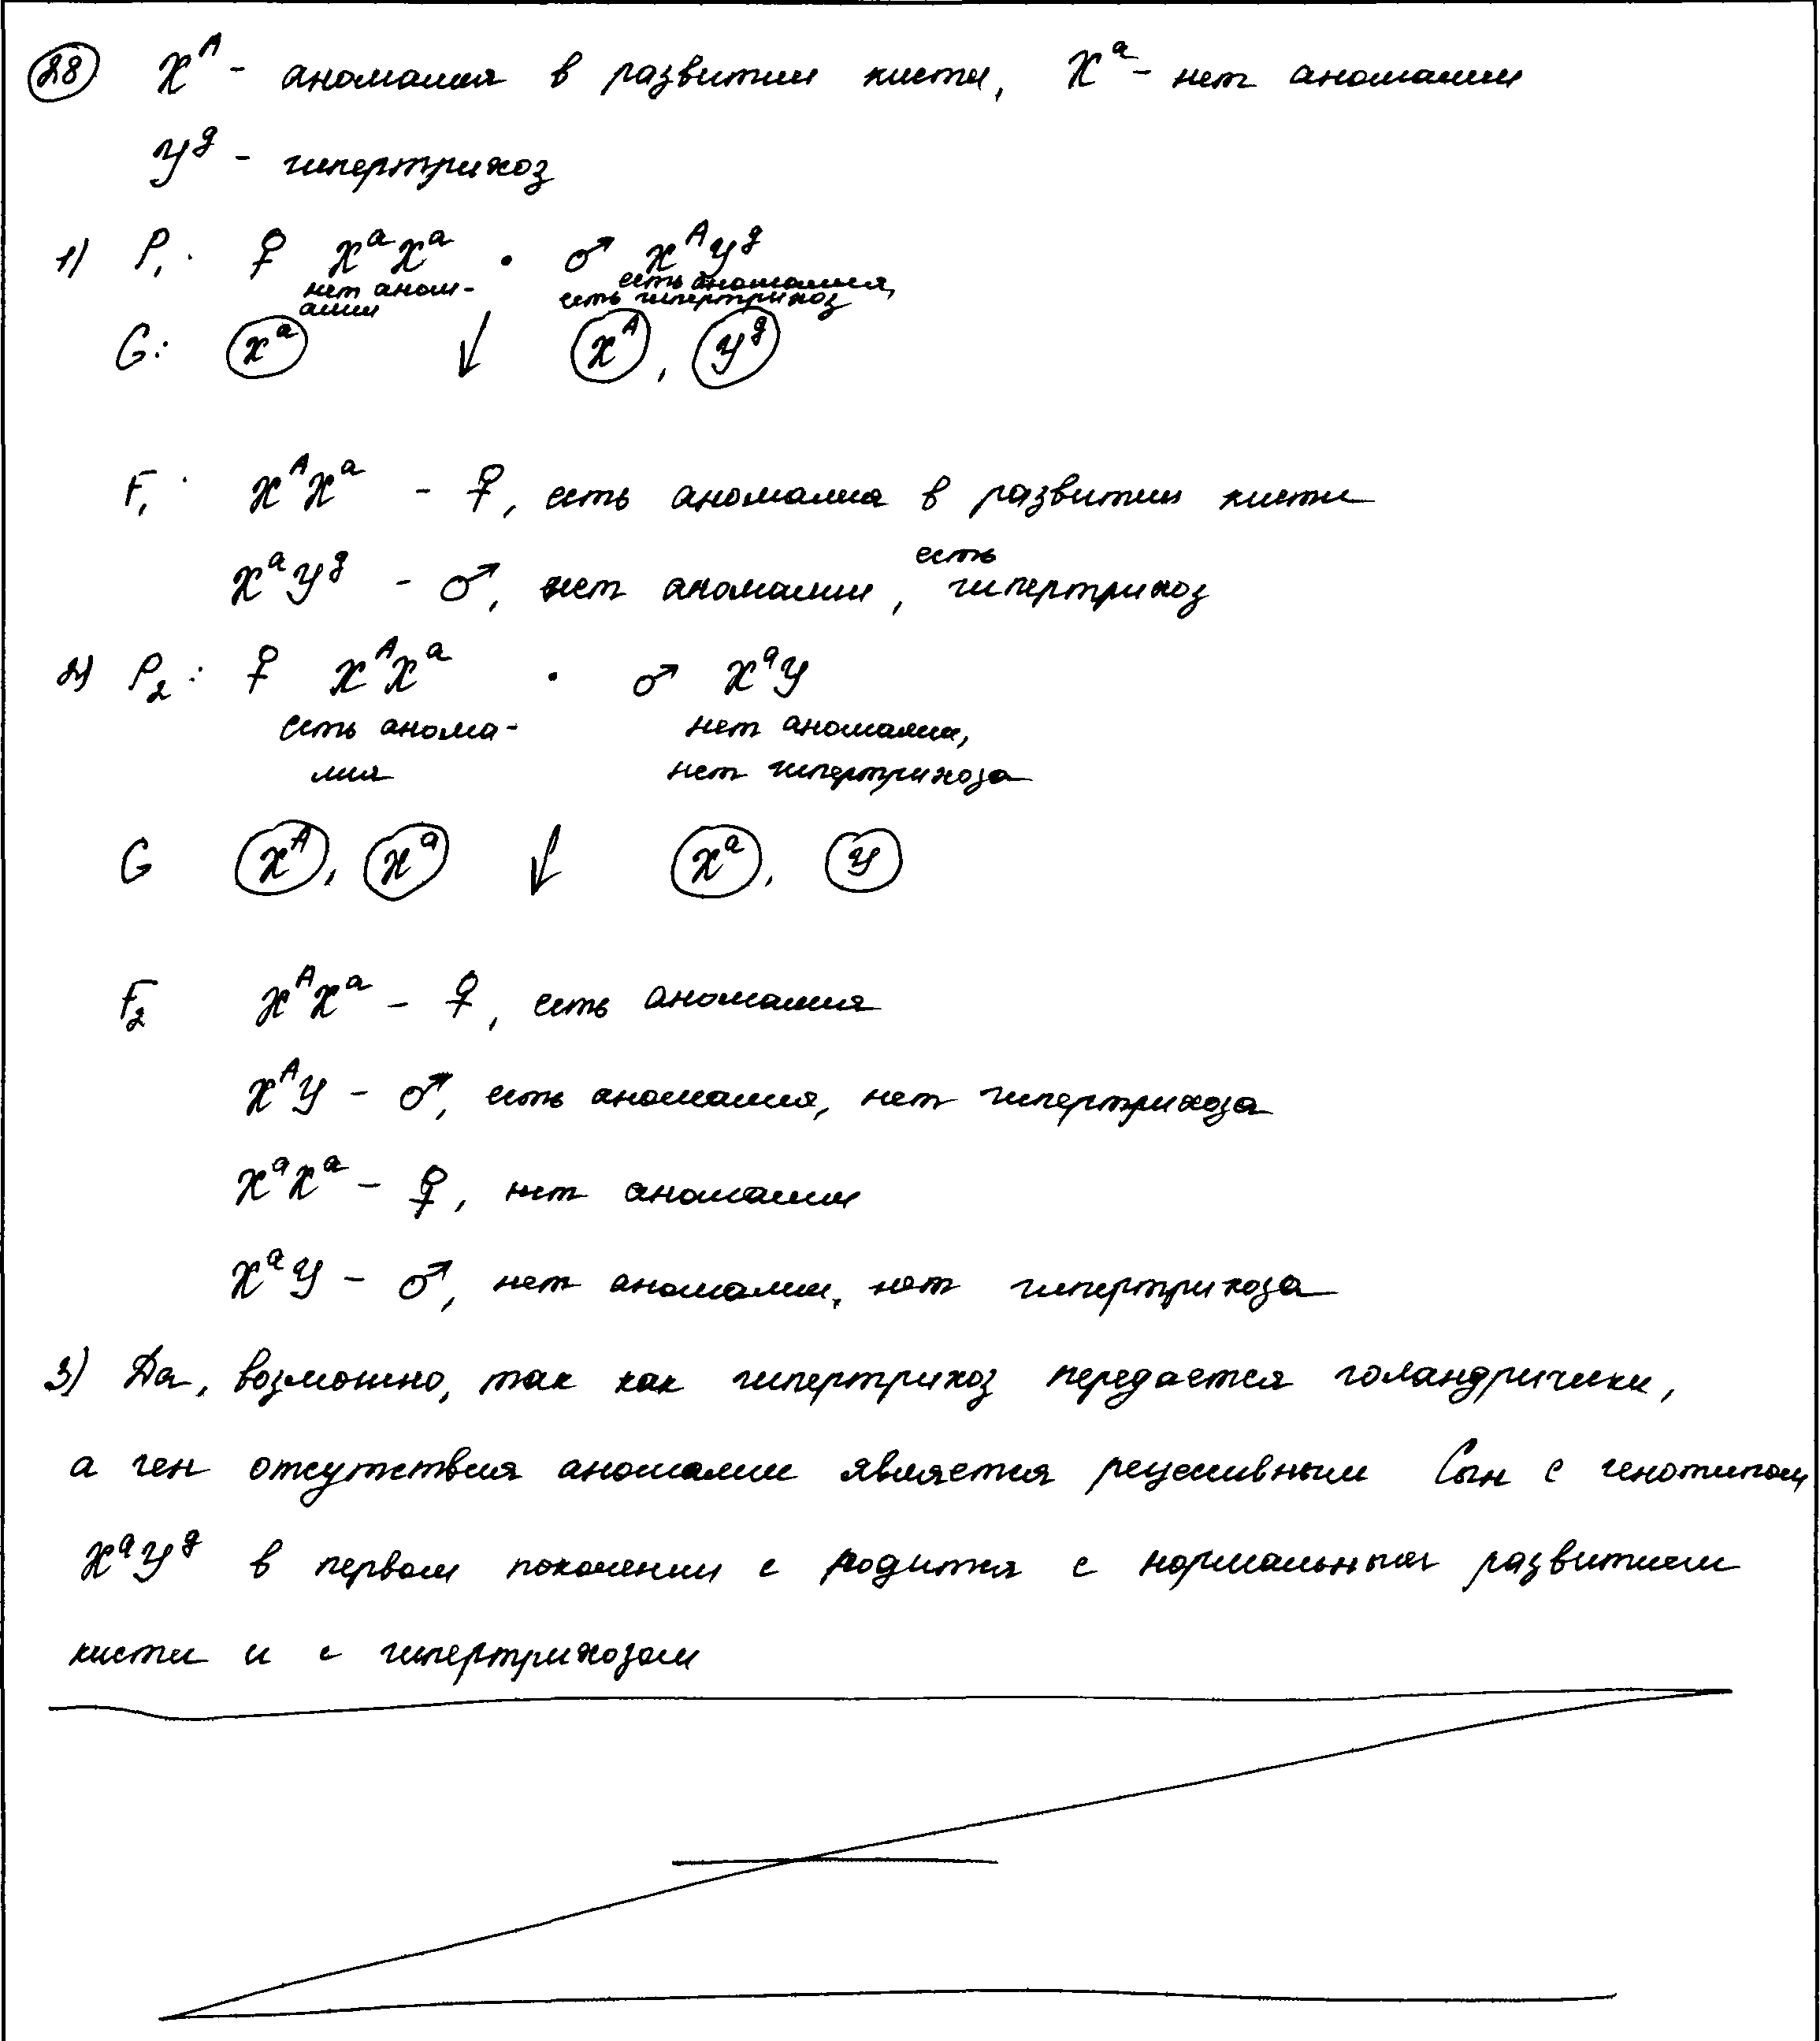 28 X^A - аномалия в развитии кисти, X^a - нет аномалии
У^g - гипертрихоз
1) P₁: ♀ X^a X^a · ♂ X^A У^g
нет аном- есть аномалия,
алии есть гипертрихоз
G: X^a ↓ X^A, У^g
F₁: X^A X^a - ♀, есть аномалия в развитии кисти
X^a У^g - ♂, нет аномалии, есть гипертрихоз
2) P₂: ♀ X^A X^a · ♂ X^a У
есть анома- нет аномалии,
лия нет гипертрихоза
G X^A, X^a ↓ X^a, У
F₂ X^A X^a - ♀, есть аномалия
X^A У - ♂, есть аномалия, нет гипертрихоза
X^a X^a - ♀, нет аномалии
X^a У - ♂, нет аномалии, нет гипертрихоза
3) Да, возможно, так как гипертрихоз передается голандрически,
а ген отсутствия аномалии является рецессивным Сын с генотипом
X^a У^g в первом поколении с родится с нормальным развитием
кисти и с гипертрихозом